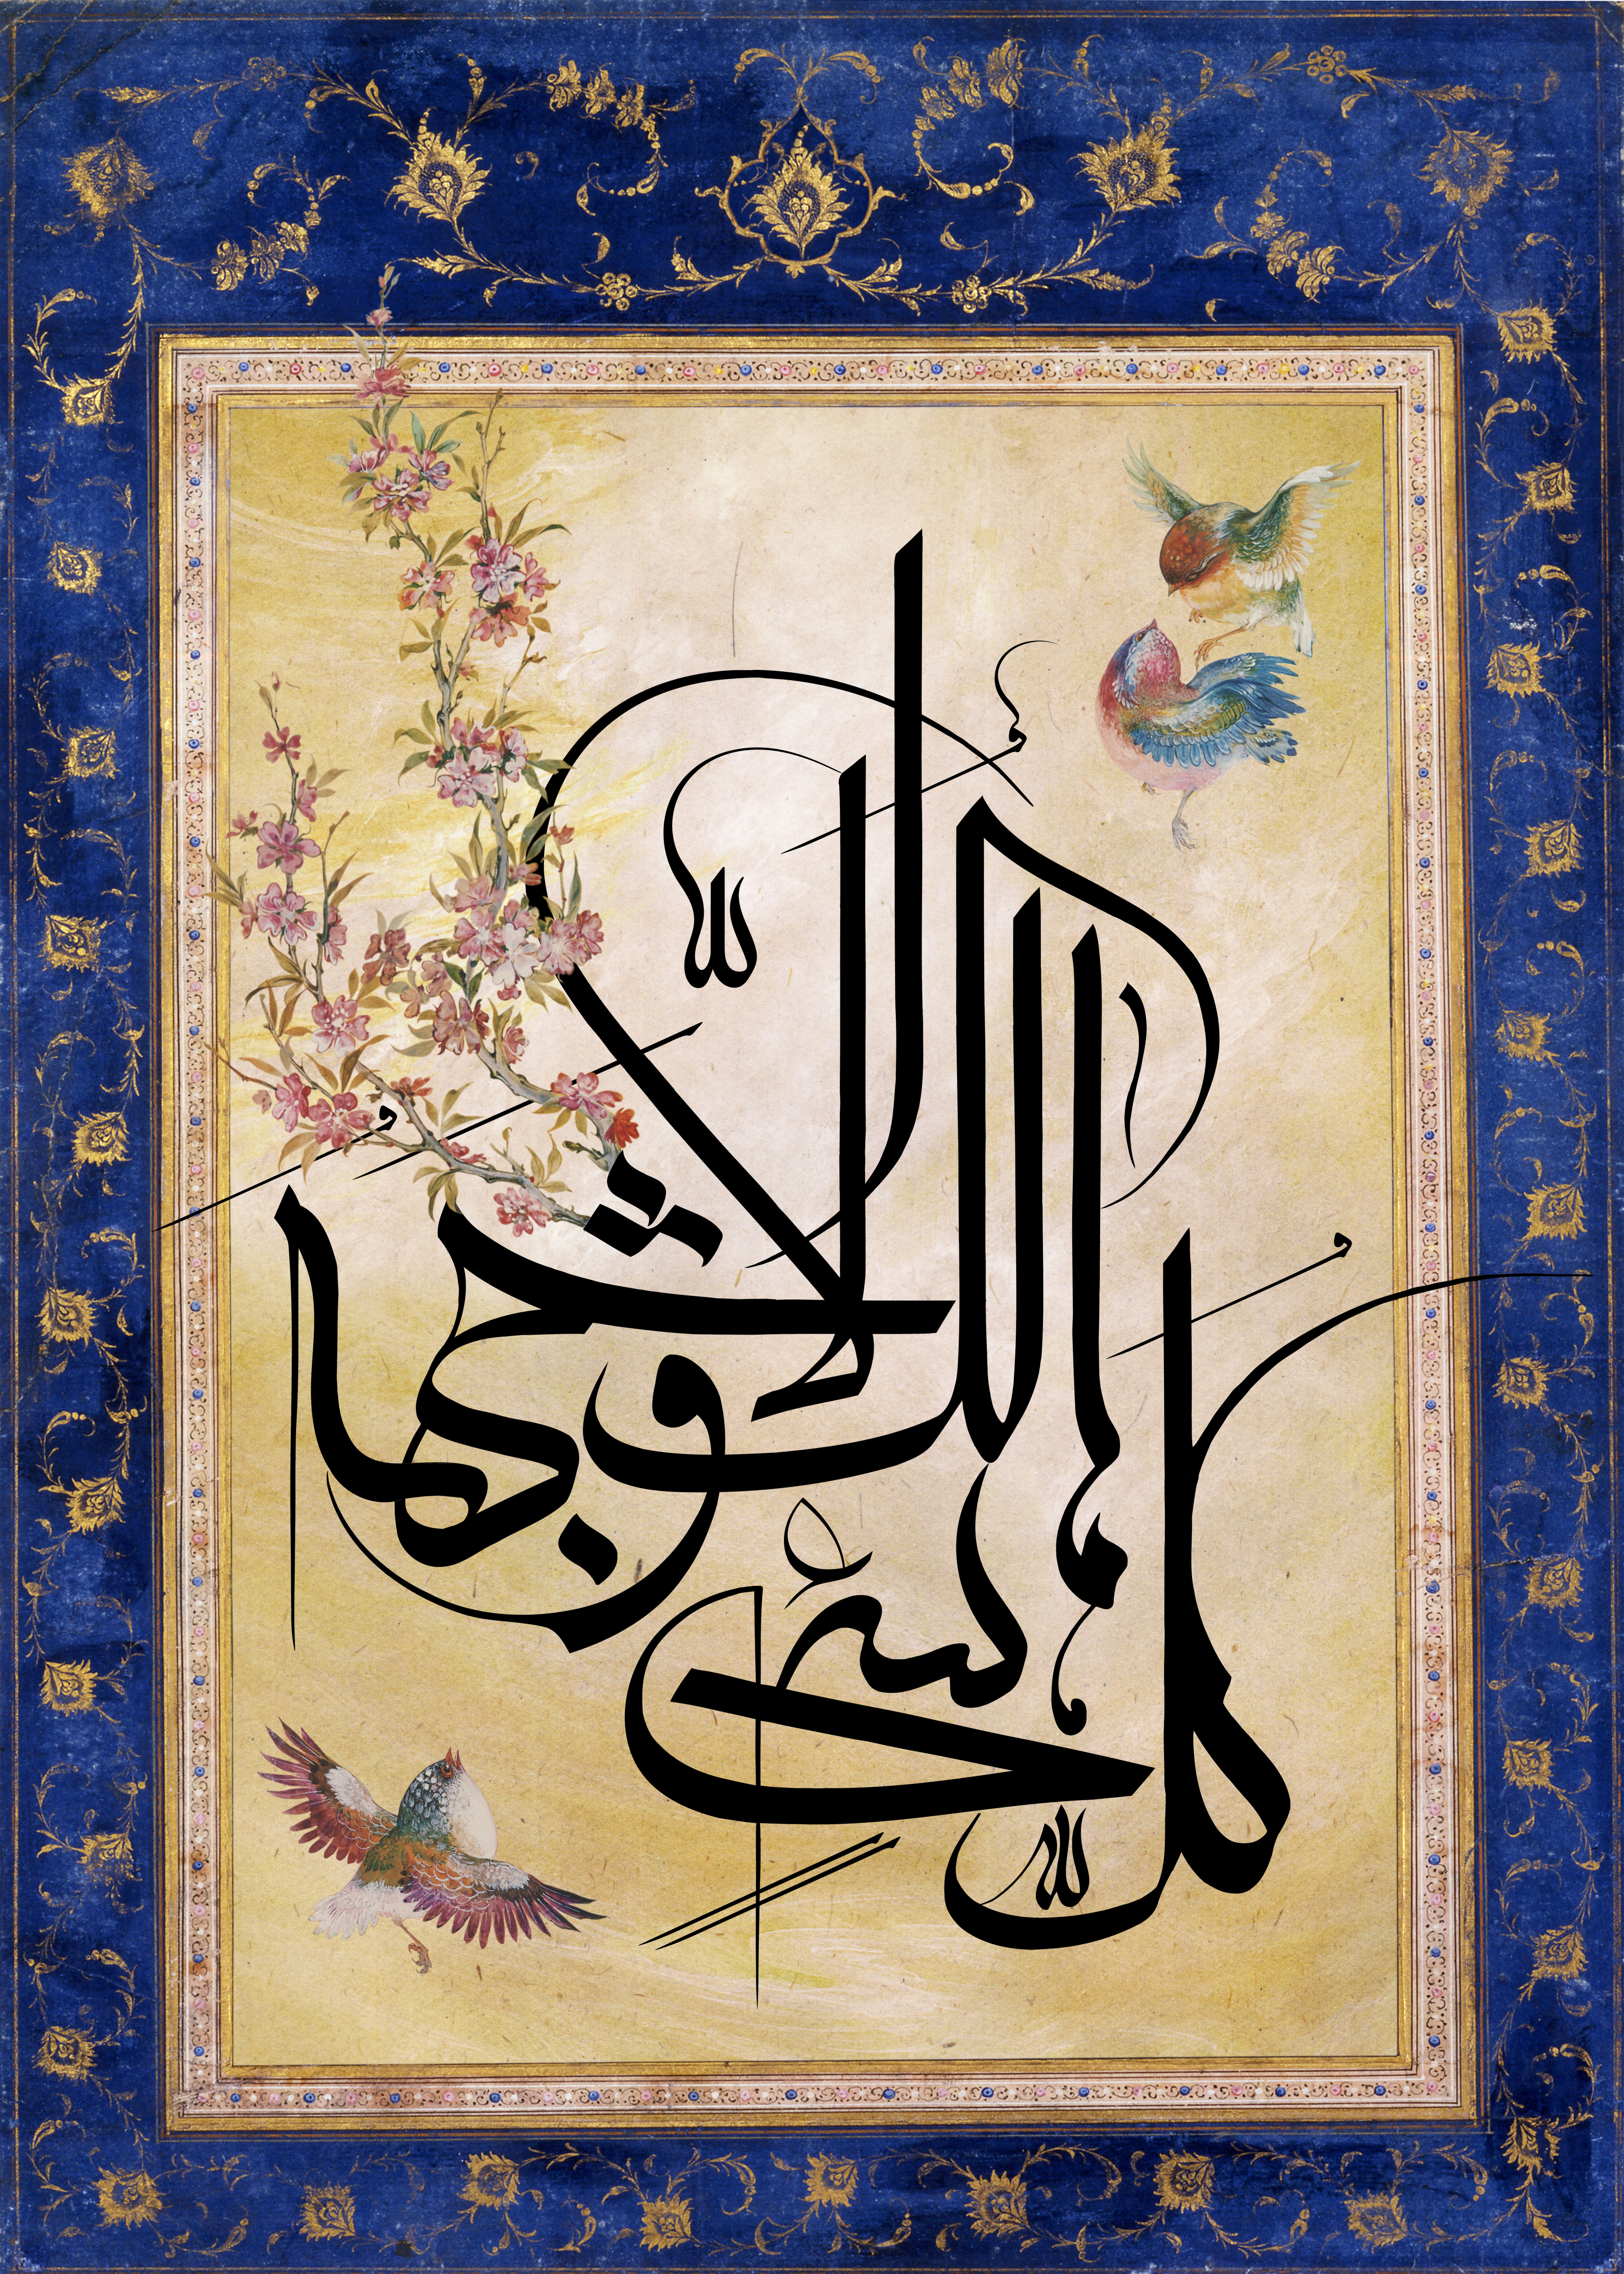 كُلُّ شَيْءٍ هَالِكٌ
إِلَّا وَجْهَهُ